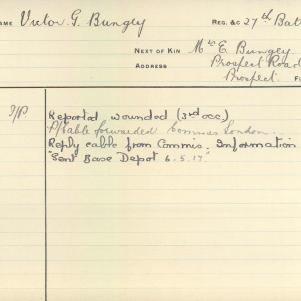 NAME Victor G. Bungey REG. &c 27th Bat
NEXT OF KIN Mrs E. Bungey
ADDRESS Prospect Road
Prospect.
Reported wounded (3rd occ)
P/Cable forwarded Commis London.
Reply cable from Commis. Information
"Sent Base Depot 6.5.17."